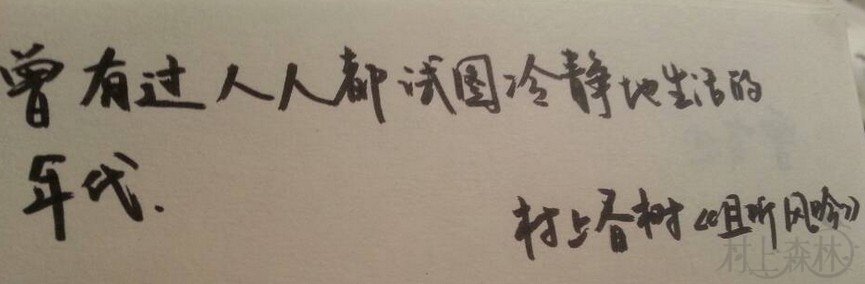 曾有过人人都试图冷静地生活的
年代.
村上春树《且听风吟》
村上森林